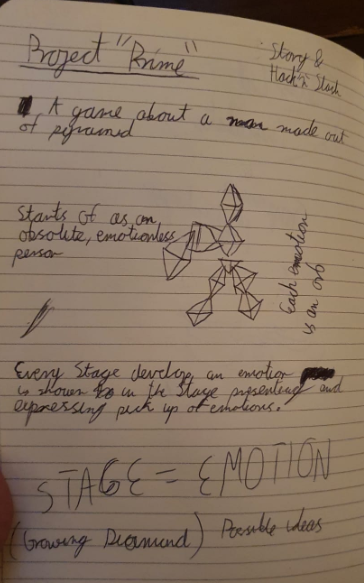 Project "Prime"
Story &
Hack n Slash
A game about a man made out
of piramid
Starts of as an
obsolute, emotionless
person
Each emotion
is an orb
Every Stage develop, an emotion
is shown in the Stage presenting and
expressing pick up of emotions.
STAGE = EMOTION
(Growing Diamond) Possible ideas